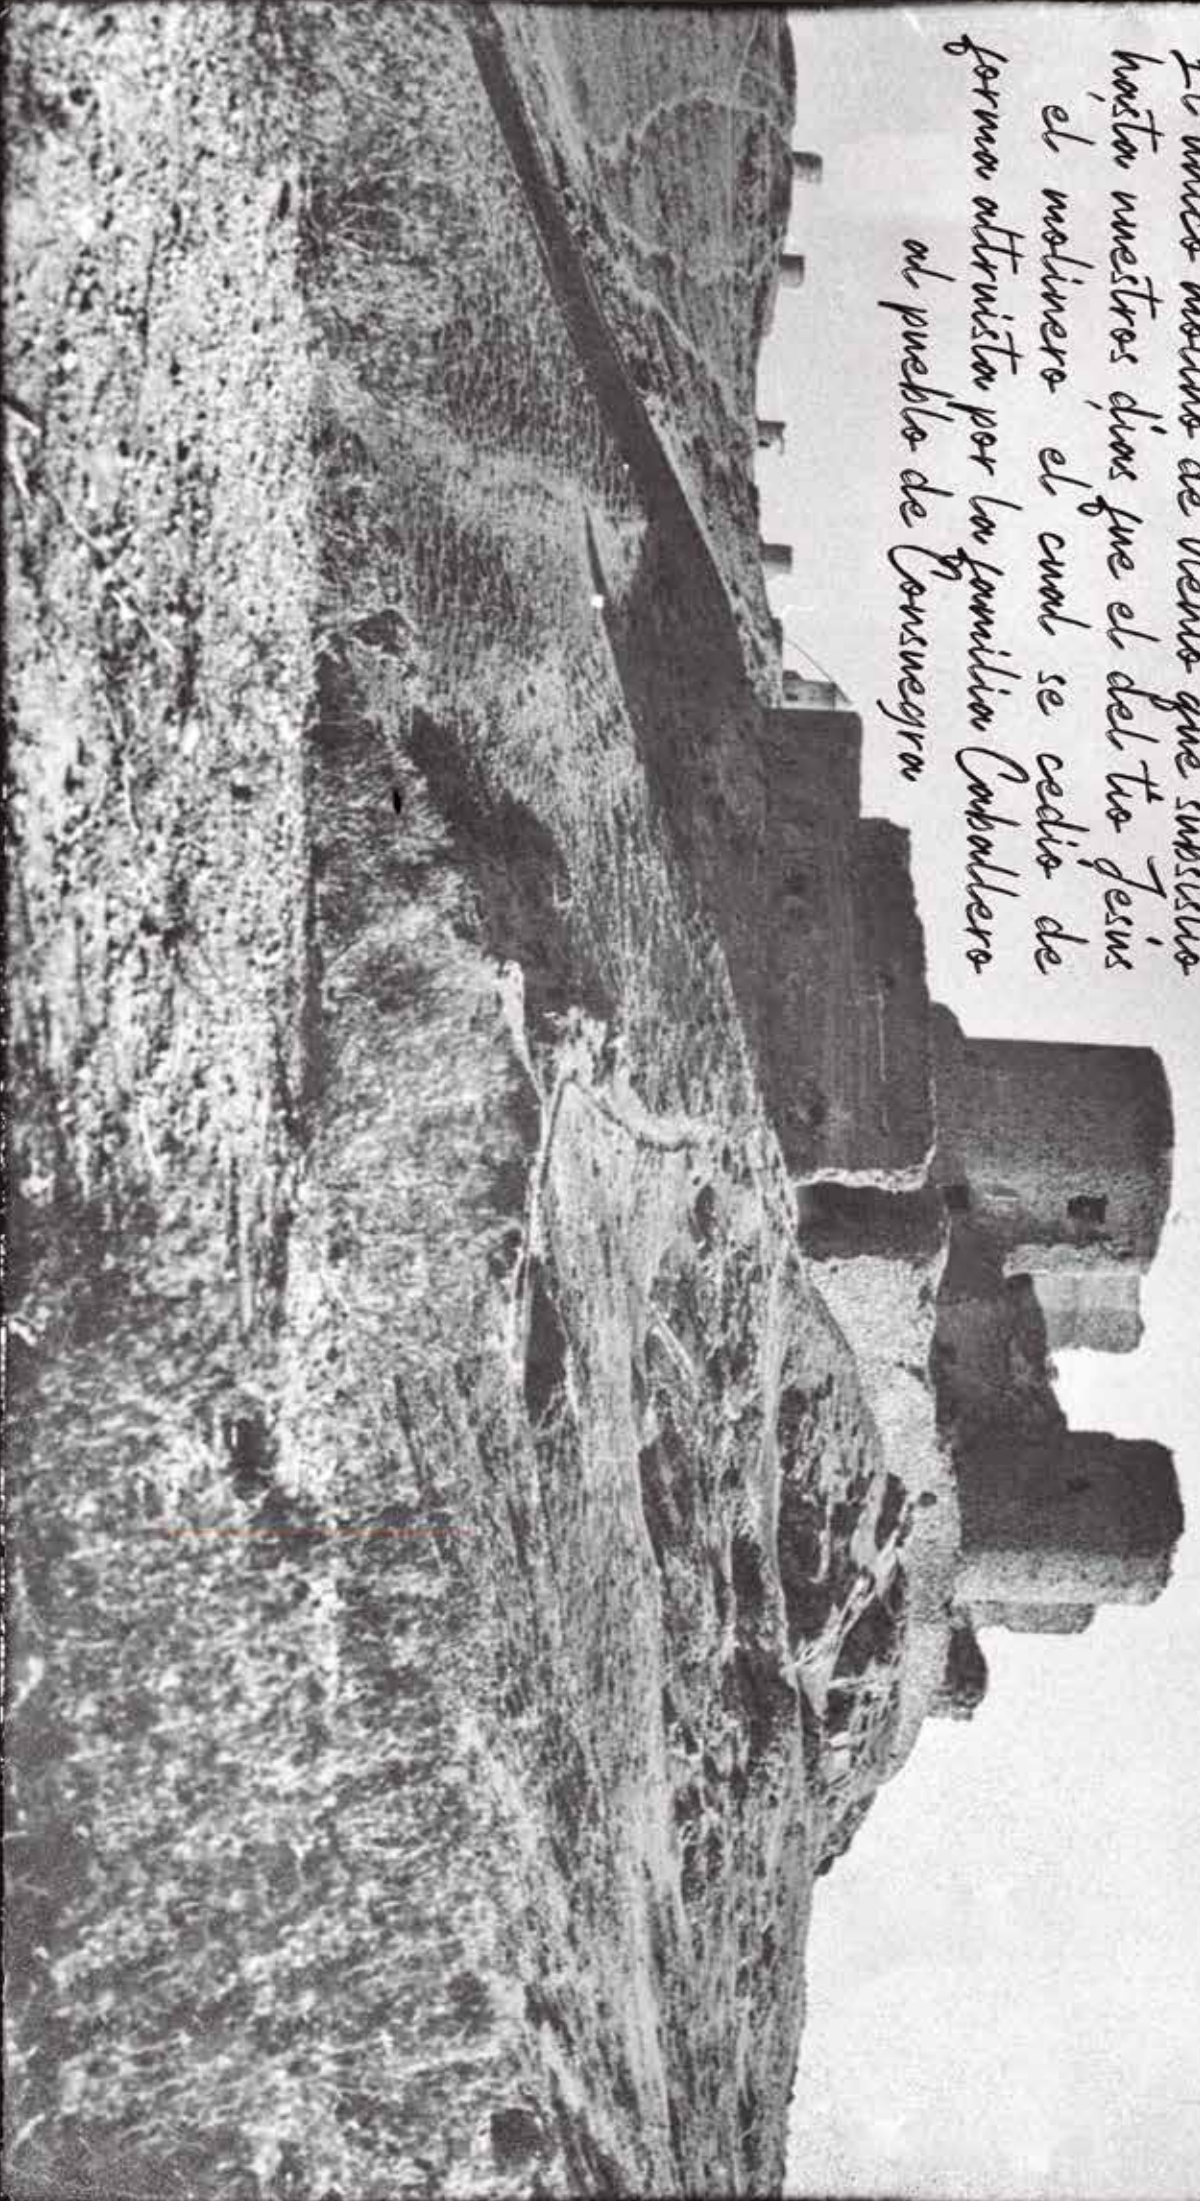 El único molino de viento que subsistió
hasta nuestros días fue el del tío Jesús
el molinero el cual se cedio de
forma altruista por la familia Caballero
al pueblo de Consuegra